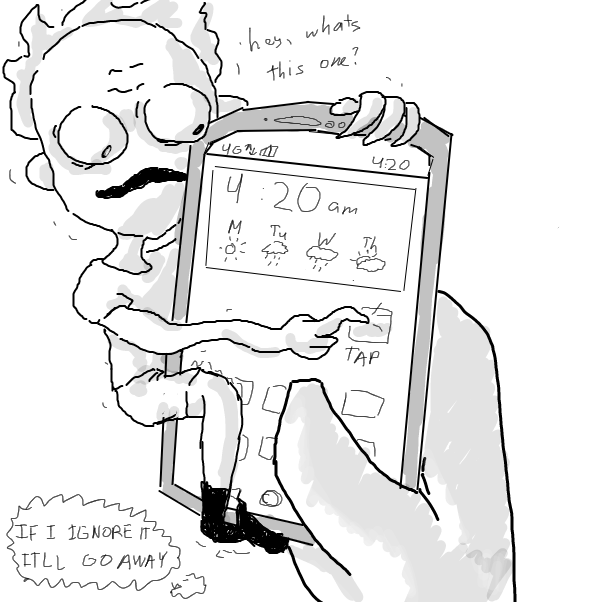 hey, whats
this one?
4G
4:20
4:20 am
M Tu W Th
TAP
IF I IGNORE IT
ITLL GO AWAY